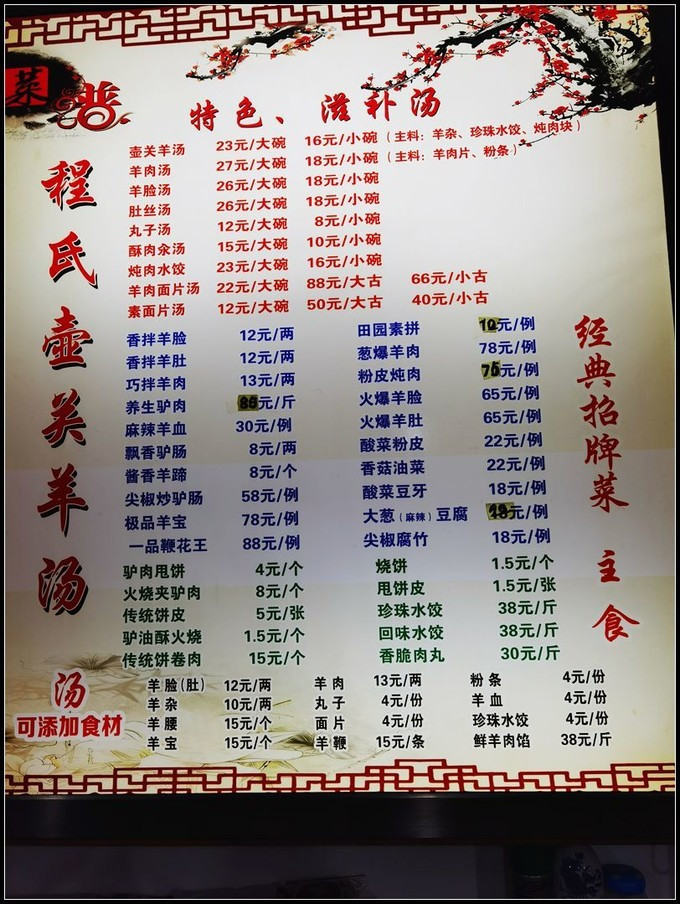 菜谱
特色、滋补汤
程氏壶关羊汤
壶关羊汤 23元/大碗 16元/小碗(主料:羊杂、珍珠水饺、炖肉块)
羊肉汤 27元/大碗 18元/小碗(主料:羊肉片、粉条)
羊脸汤 26元/大碗 18元/小碗
肚丝汤 26元/大碗 18元/小碗
丸子汤 12元/大碗 8元/小碗
酥肉汆汤 15元/大碗 10元/小碗
炖肉水饺 23元/大碗 16元/小碗
羊肉面片汤 22元/大碗 88元/大古 66元/小古
素面片汤 12元/大碗 50元/大古 40元/小古
经典招牌菜 主食
香拌羊脸 12元/两 田园素拼 元/例
香拌羊肚 12元/两 葱爆羊肉 78元/例
巧拌羊肉 13元/两 粉皮炖肉 75元/例
养生驴肉 元/斤 火爆羊脸 65元/例
麻辣羊血 30元/例 火爆羊肚 65元/例
飘香驴肠 8元/两 酸菜粉皮 22元/例
酱香羊蹄 8元/个 香菇油菜 22元/例
尖椒炒驴肠 58元/例 酸菜豆牙 18元/例
极品羊宝 78元/例 大葱(麻辣)豆腐 元/例
一品鞭花王 88元/例 尖椒腐竹 18元/例
驴肉甩饼 4元/个 烧饼 1.5元/个
火烧夹驴肉 8元/个 甩饼皮 1.5元/张
传统饼皮 5元/张 珍珠水饺 38元/斤
驴油酥火烧 1.5元/个 回味水饺 38元/斤
传统饼卷肉 15元/个 香脆肉丸 30元/斤
汤
可添加食材
羊脸(肚) 12元/两 羊肉 13元/两 粉条 4元/份
羊杂 10元/两 丸子 4元/份 羊血 4元/份
羊腰 15元/个 面片 4元/份 珍珠水饺 4元/份
羊宝 15元/个 羊鞭 15元/条 鲜羊肉馅 38元/斤